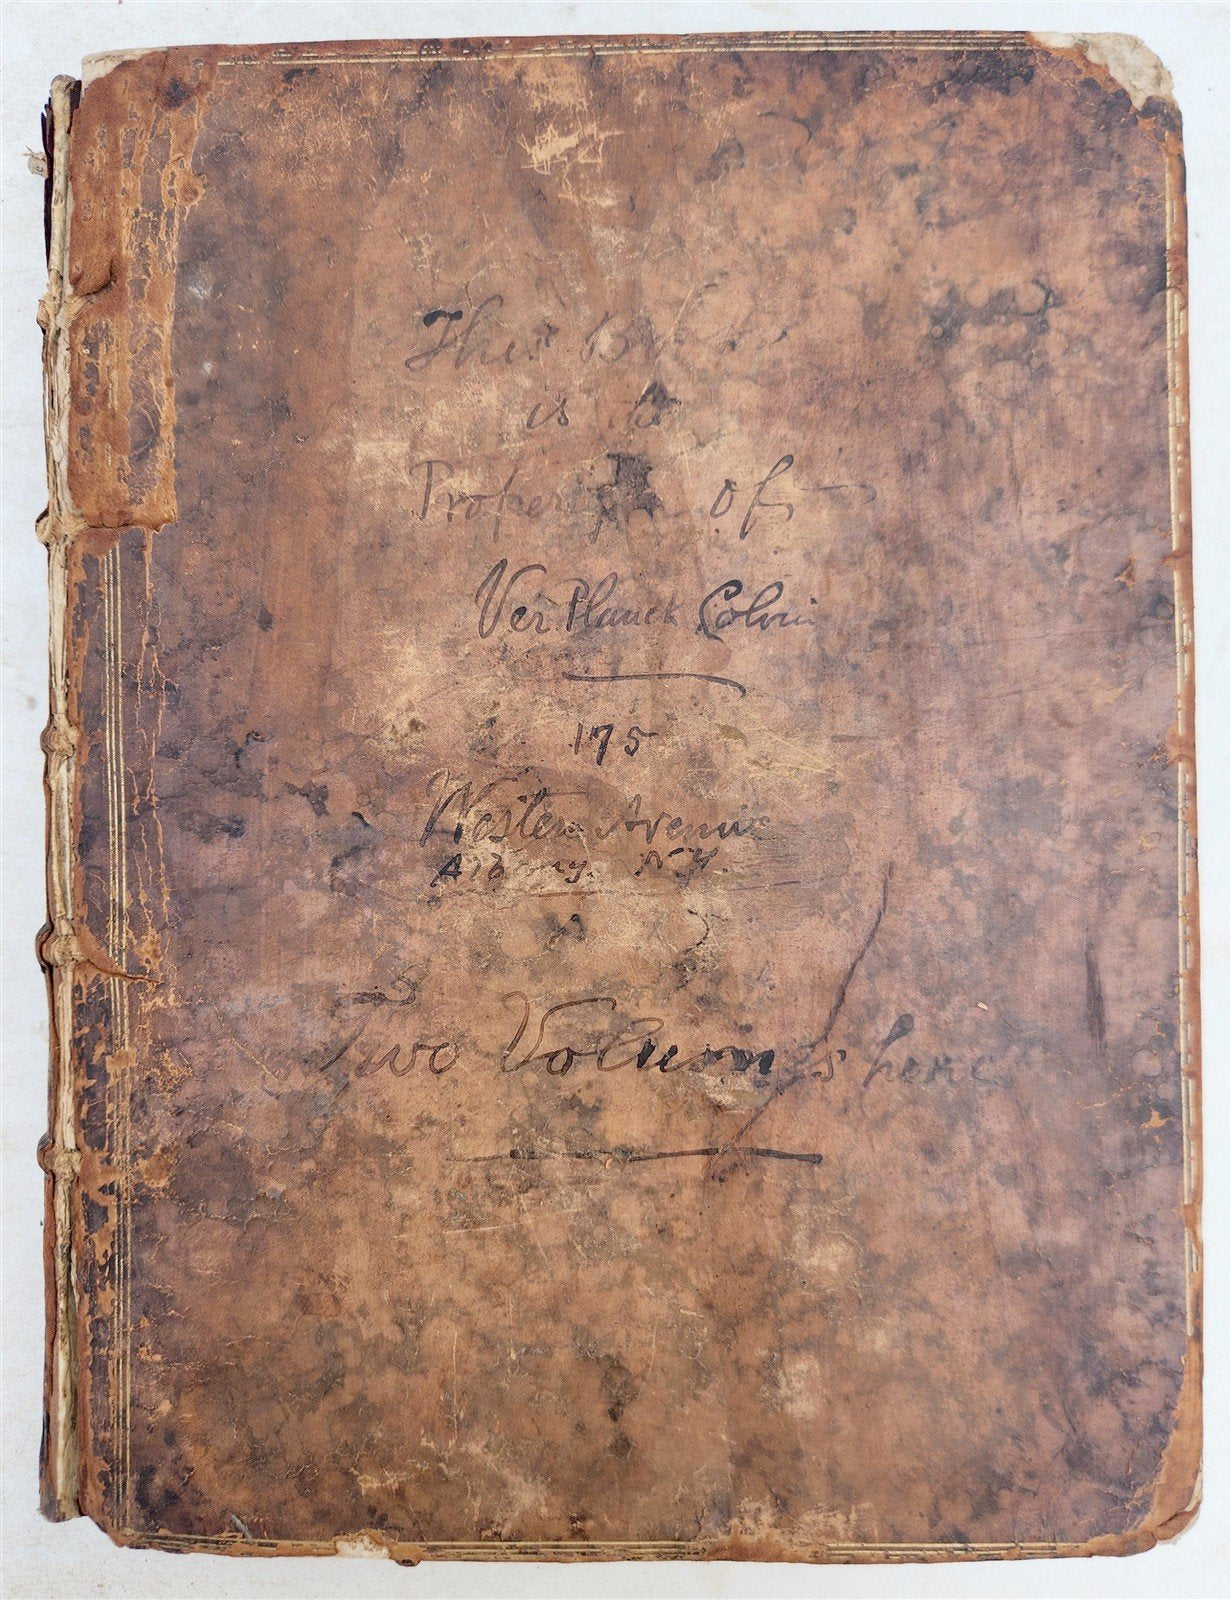 This
is
Property of
Ver Planck Colvin
175
Western Avenue
Albany. N.Y.
Two Volums here